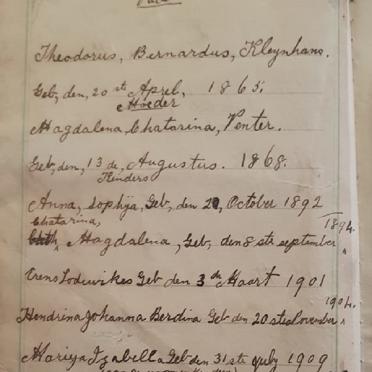 Theodorus, Bernardus, Kleynhans.
Geb, den, 20 ste Aprel, 1865.
Moeder
Magdalena, Chatarina, Venter.
Geb, den, 13 de, Augustus. 1868.
Kinders
Anna, Sophija, Geb, den 20, October 1892
Chatarina, 1894.
Magdalena, Geb, den 8 ste september "
Lodewikes Geb den 3 de Maart 1901
1904.
Hendrina Johanna Berdina Geb den 20 ste November "
Mariya Izabella Geb den 31 ste july 1909